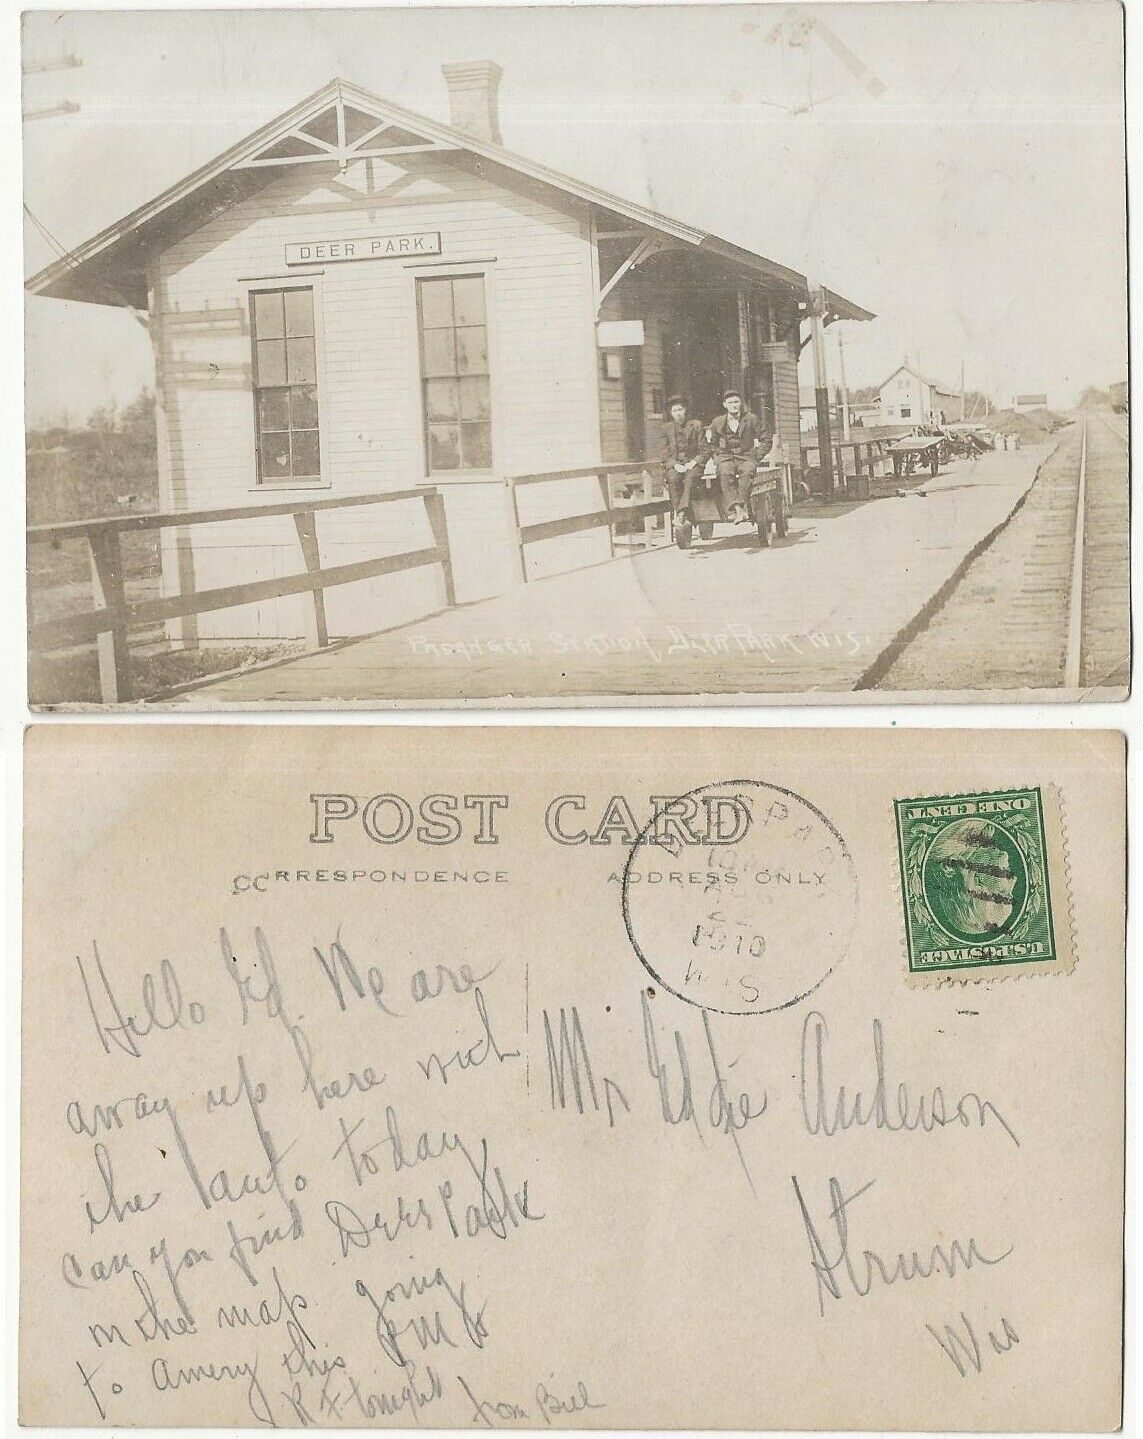 DEER PARK.
PASSENGER STATION, DEER PARK WIS.
POST CARD
CORRESPONDENCE
ADDRESS ONLY
DEER PARK
AUG
22
1910
WIS
ONE CENT
U.S. POSTAGE
Hello Ed. We are
away up here with
the auto today
can you find Deer Park
on the map. going
to Amery this PM &
R F tonight from Bill
Mr Eddie Anderson
Strum
Wis